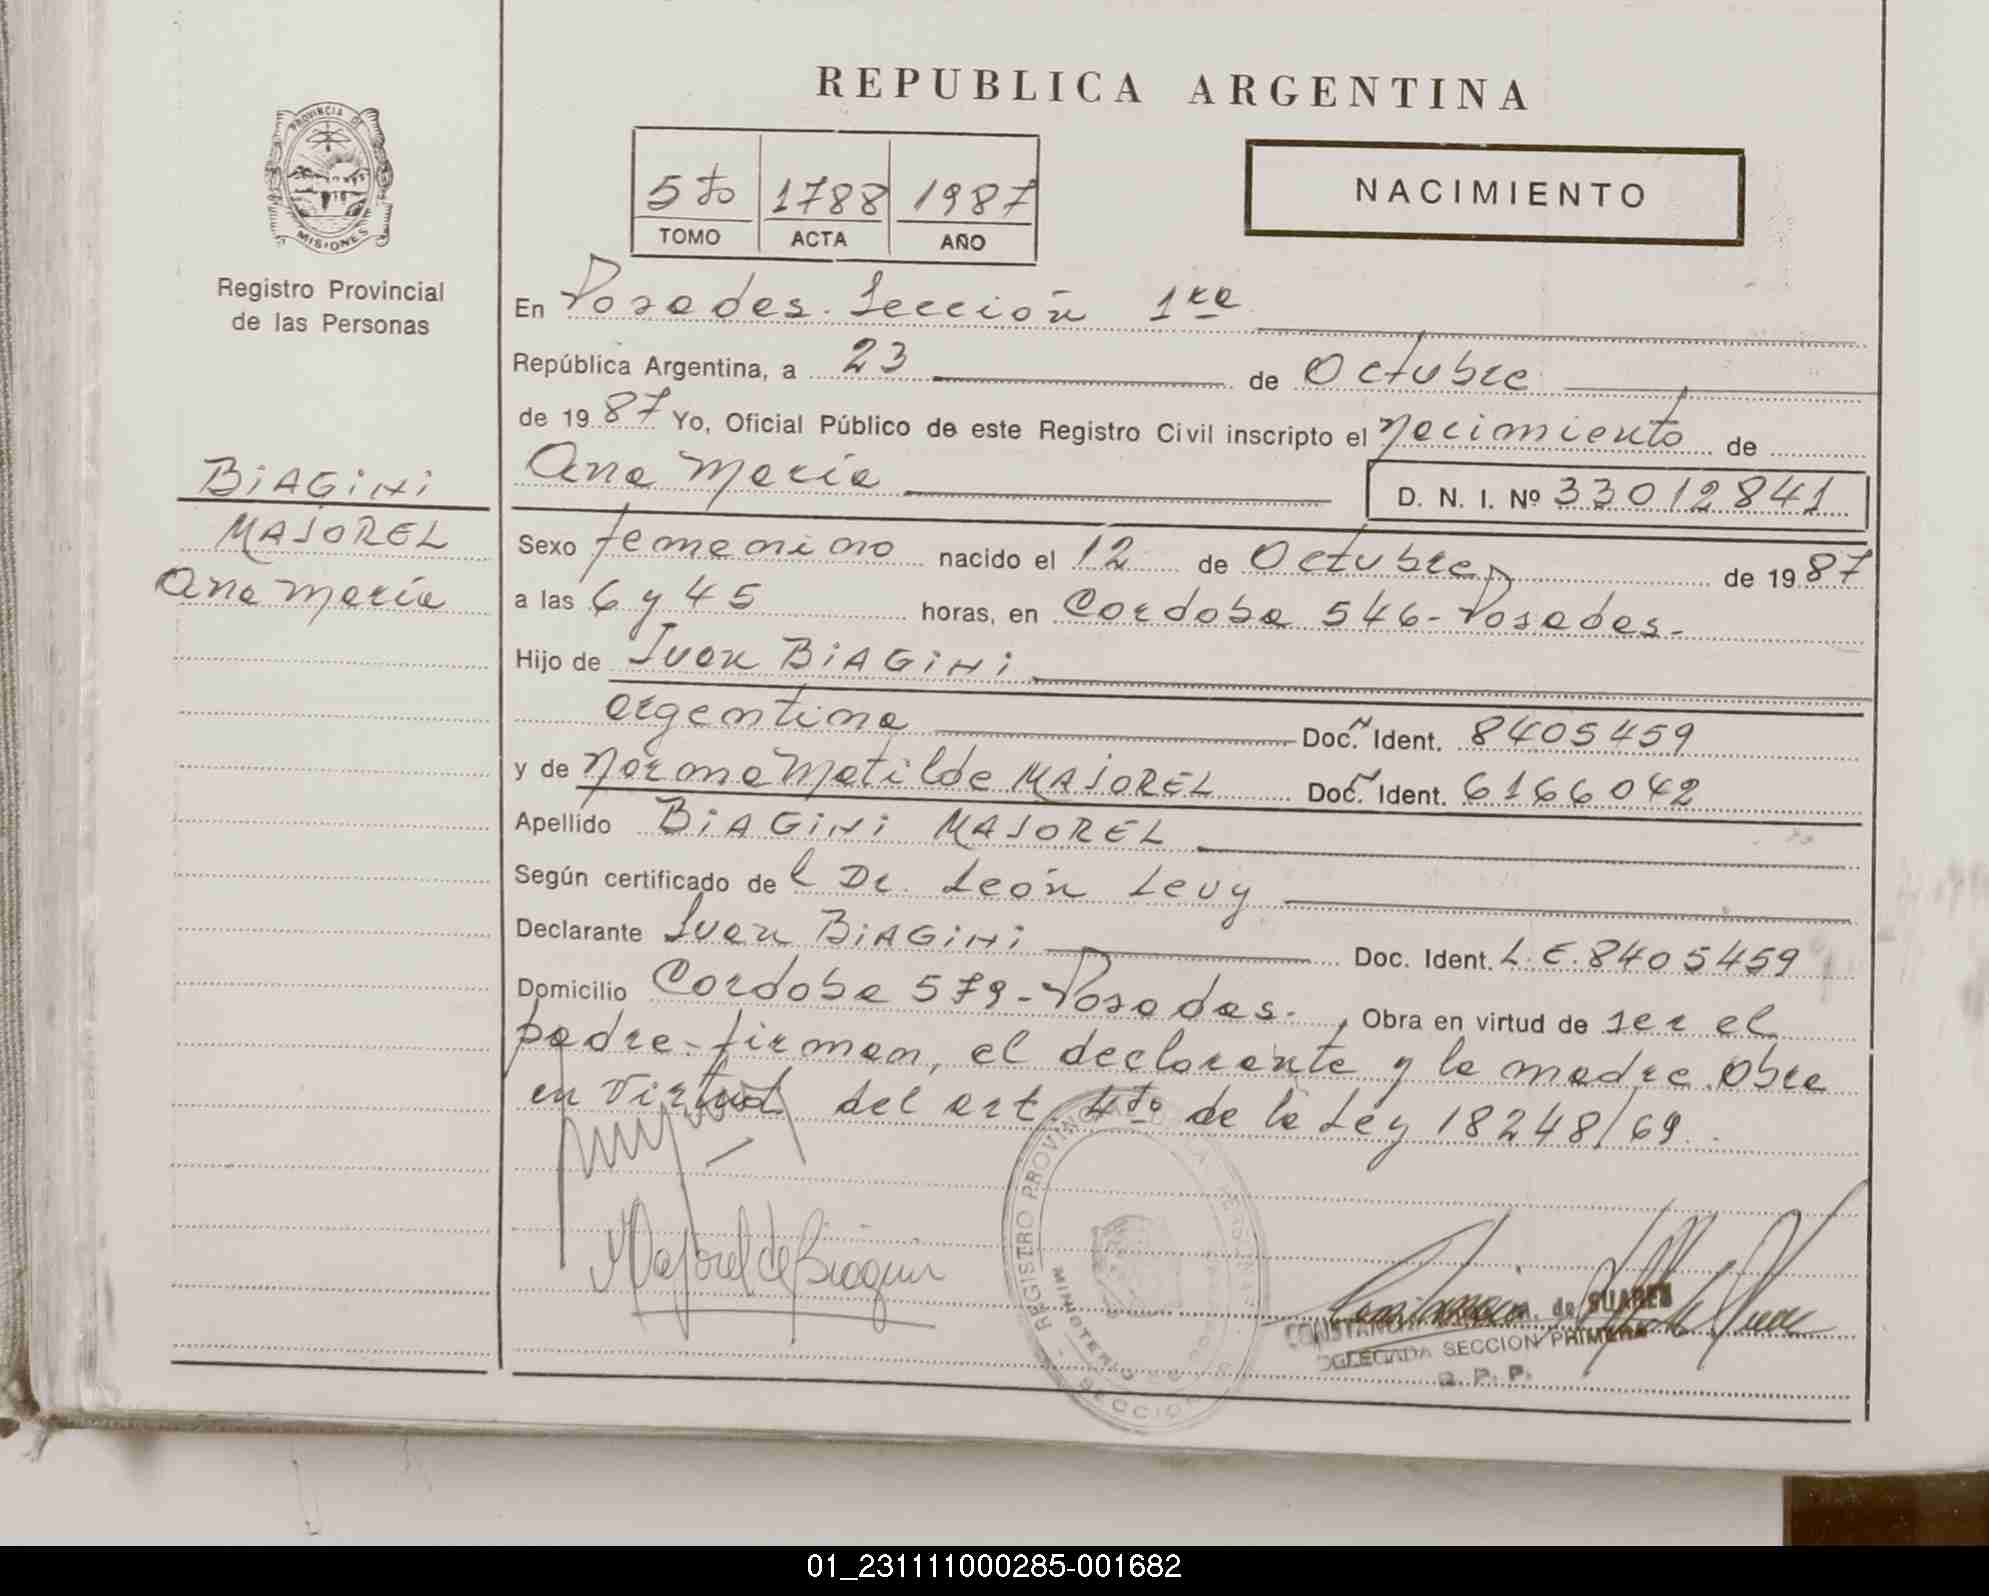 REPUBLICA ARGENTINA
PROVINCIA DE
MISIONES
Registro Provincial
de las Personas
5to 1788 1987
TOMO ACTA AÑO
NACIMIENTO
En Posadas. Sección 1ra
República Argentina, a 23 de Octubre
de 1987 Yo, Oficial Público de este Registro Civil inscripto el Nacimiento de
Ana María D. N. I. Nº 33012841
BiAGiNi
MAJOREL
Ana María
Sexo femenino nacido el 12 de Octubre de 1987
a las 6 y 45 horas, en Cordoba 546-Posadas.-
Hijo de Juan BiAGiNi
argentina Doc. Ident. 8405459
y de Norma Matilde MAJOREL Doc. Ident. 6166042
Apellido BiAGiNi MAJOREL
Según certificado del Dr. León Levy
Declarante Juan BiAGiNi Doc. Ident. L.E.8405459
Domicilio Cordoba 579-Posadas.-, Obra en virtud de ser el
padre-firman, el declarante y la madre. Obra
en Virtud del art. 4to de la Ley 18248/69.
Majorel de Biagini
REGISTRO PROVINCIAL DE LAS PERSONAS
MINISTERIO DE
SECCION
de SUAREZ
DELEGADA SECCION PRIMERA
R. P. P.
01_231111000285-001682